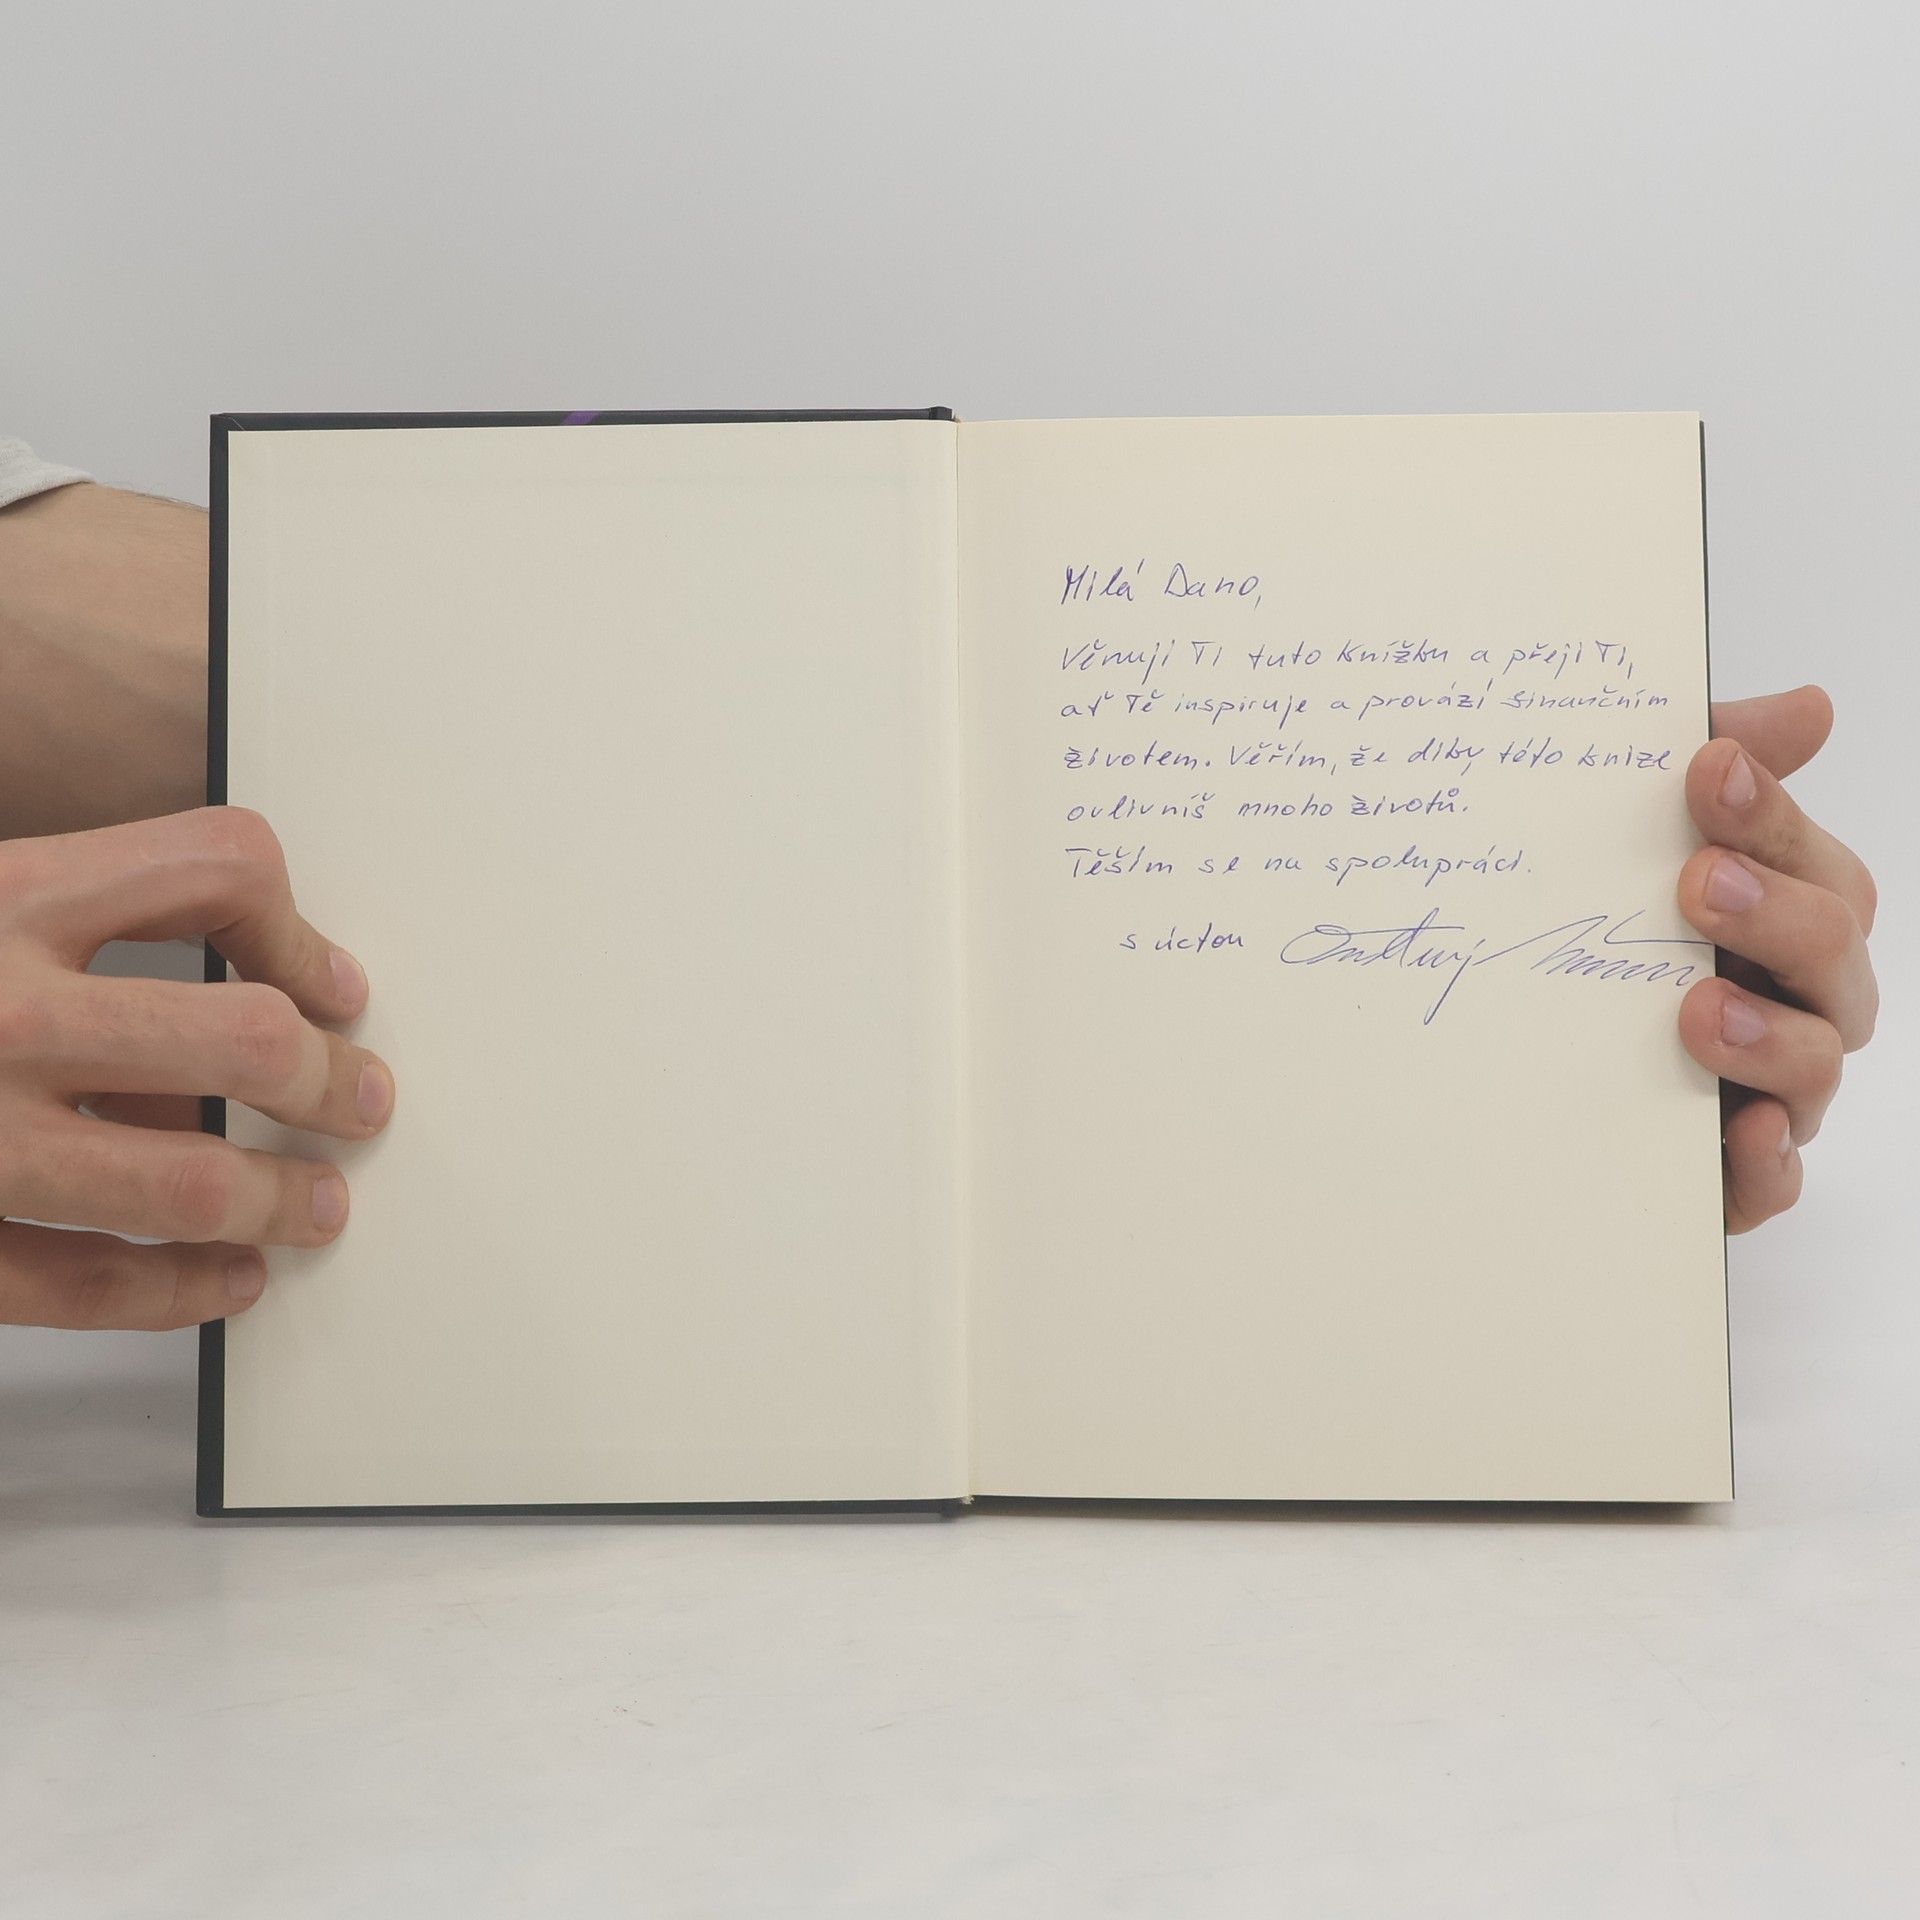 Milá Dano,
Věnuji Ti tuto knížku a přeji Ti,
ať Tě inspiruje a provází finančním
životem. Věřím, že díky této knize
ovlivníš mnoho životů.
Těším se na spolupráci.
s úctou Ondřej